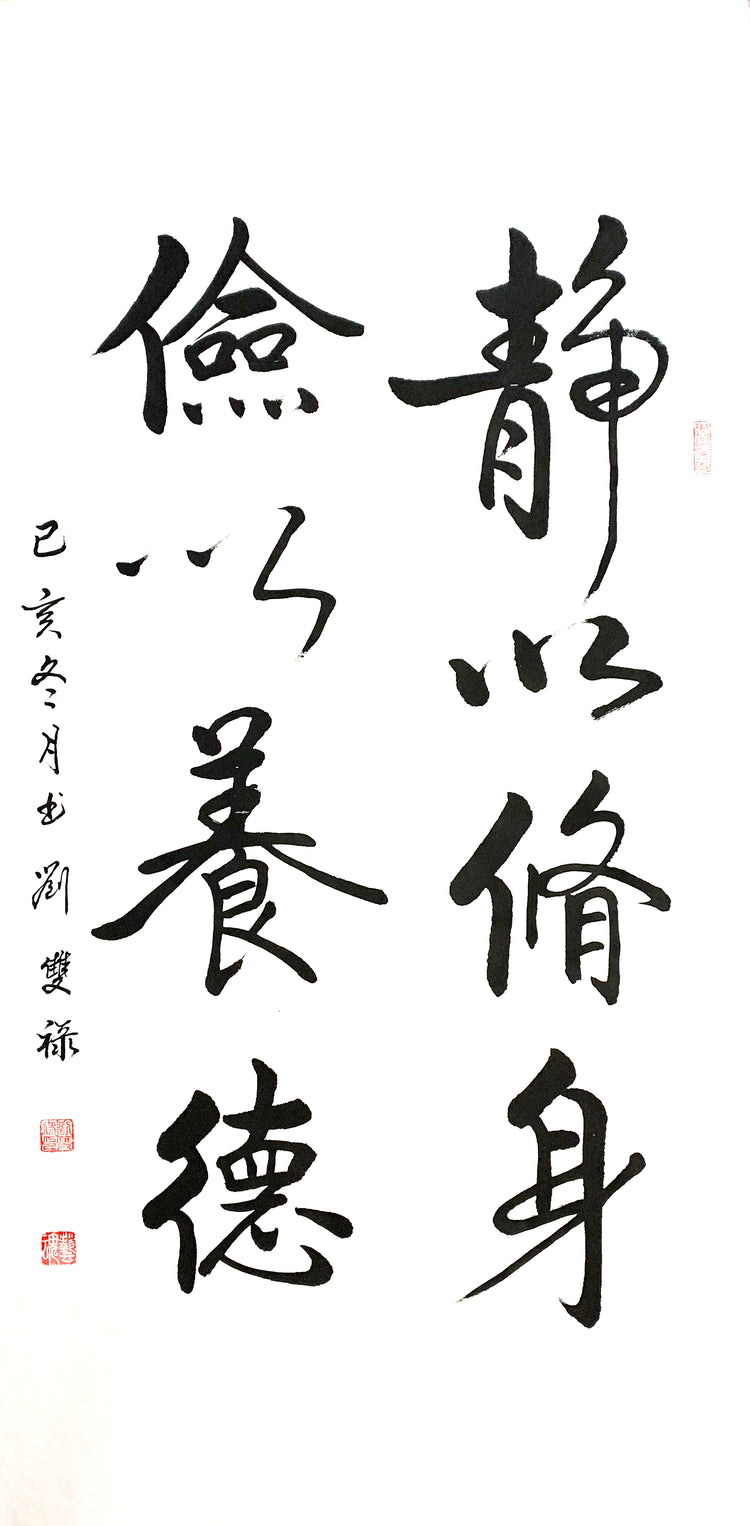 静以脩身
儉以養德
己亥冬月书劉雙禄